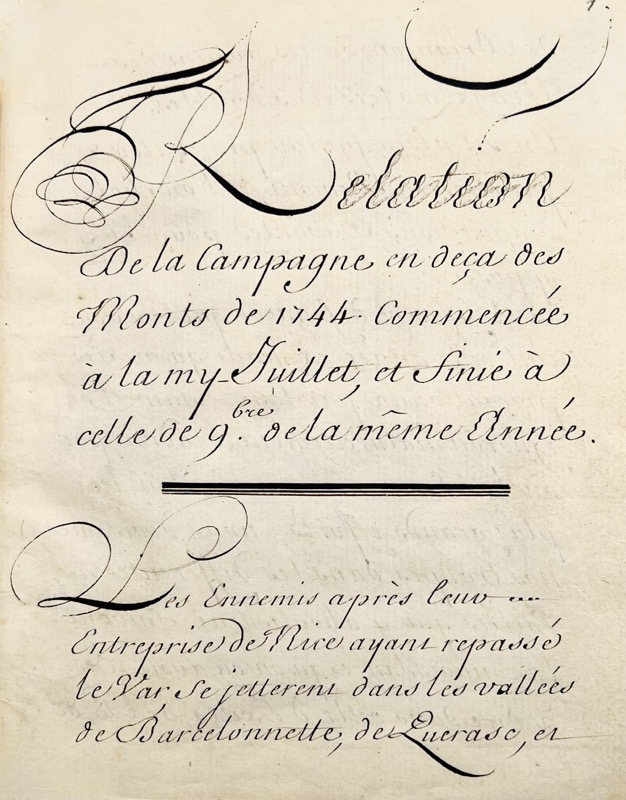 Relation
De la Campagne en deça des
Monts de 1744. Commencée
à la my-Juillet, et finie à
celle de 9.bre de la même Année.
Les Ennemis après leur
Entreprise de Nice ayant repassé
le Var se jetterent dans les vallées
de Barcelonnette, de Querasc, et